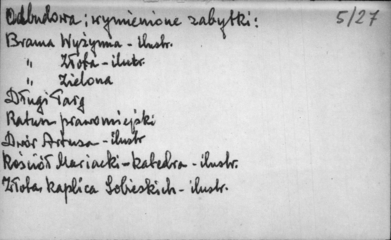 Odbudowa; wymienione zabytki: 5/27
Brama Wyżynna - ilustr.
" Złota - ilustr.
" Zielona
Długi Targ
Ratusz prawomiejski
Dwór Artusa - ilustr
Kościół Mariacki - katedra - ilustr.
Złota kaplica Sobieskich - ilustr.